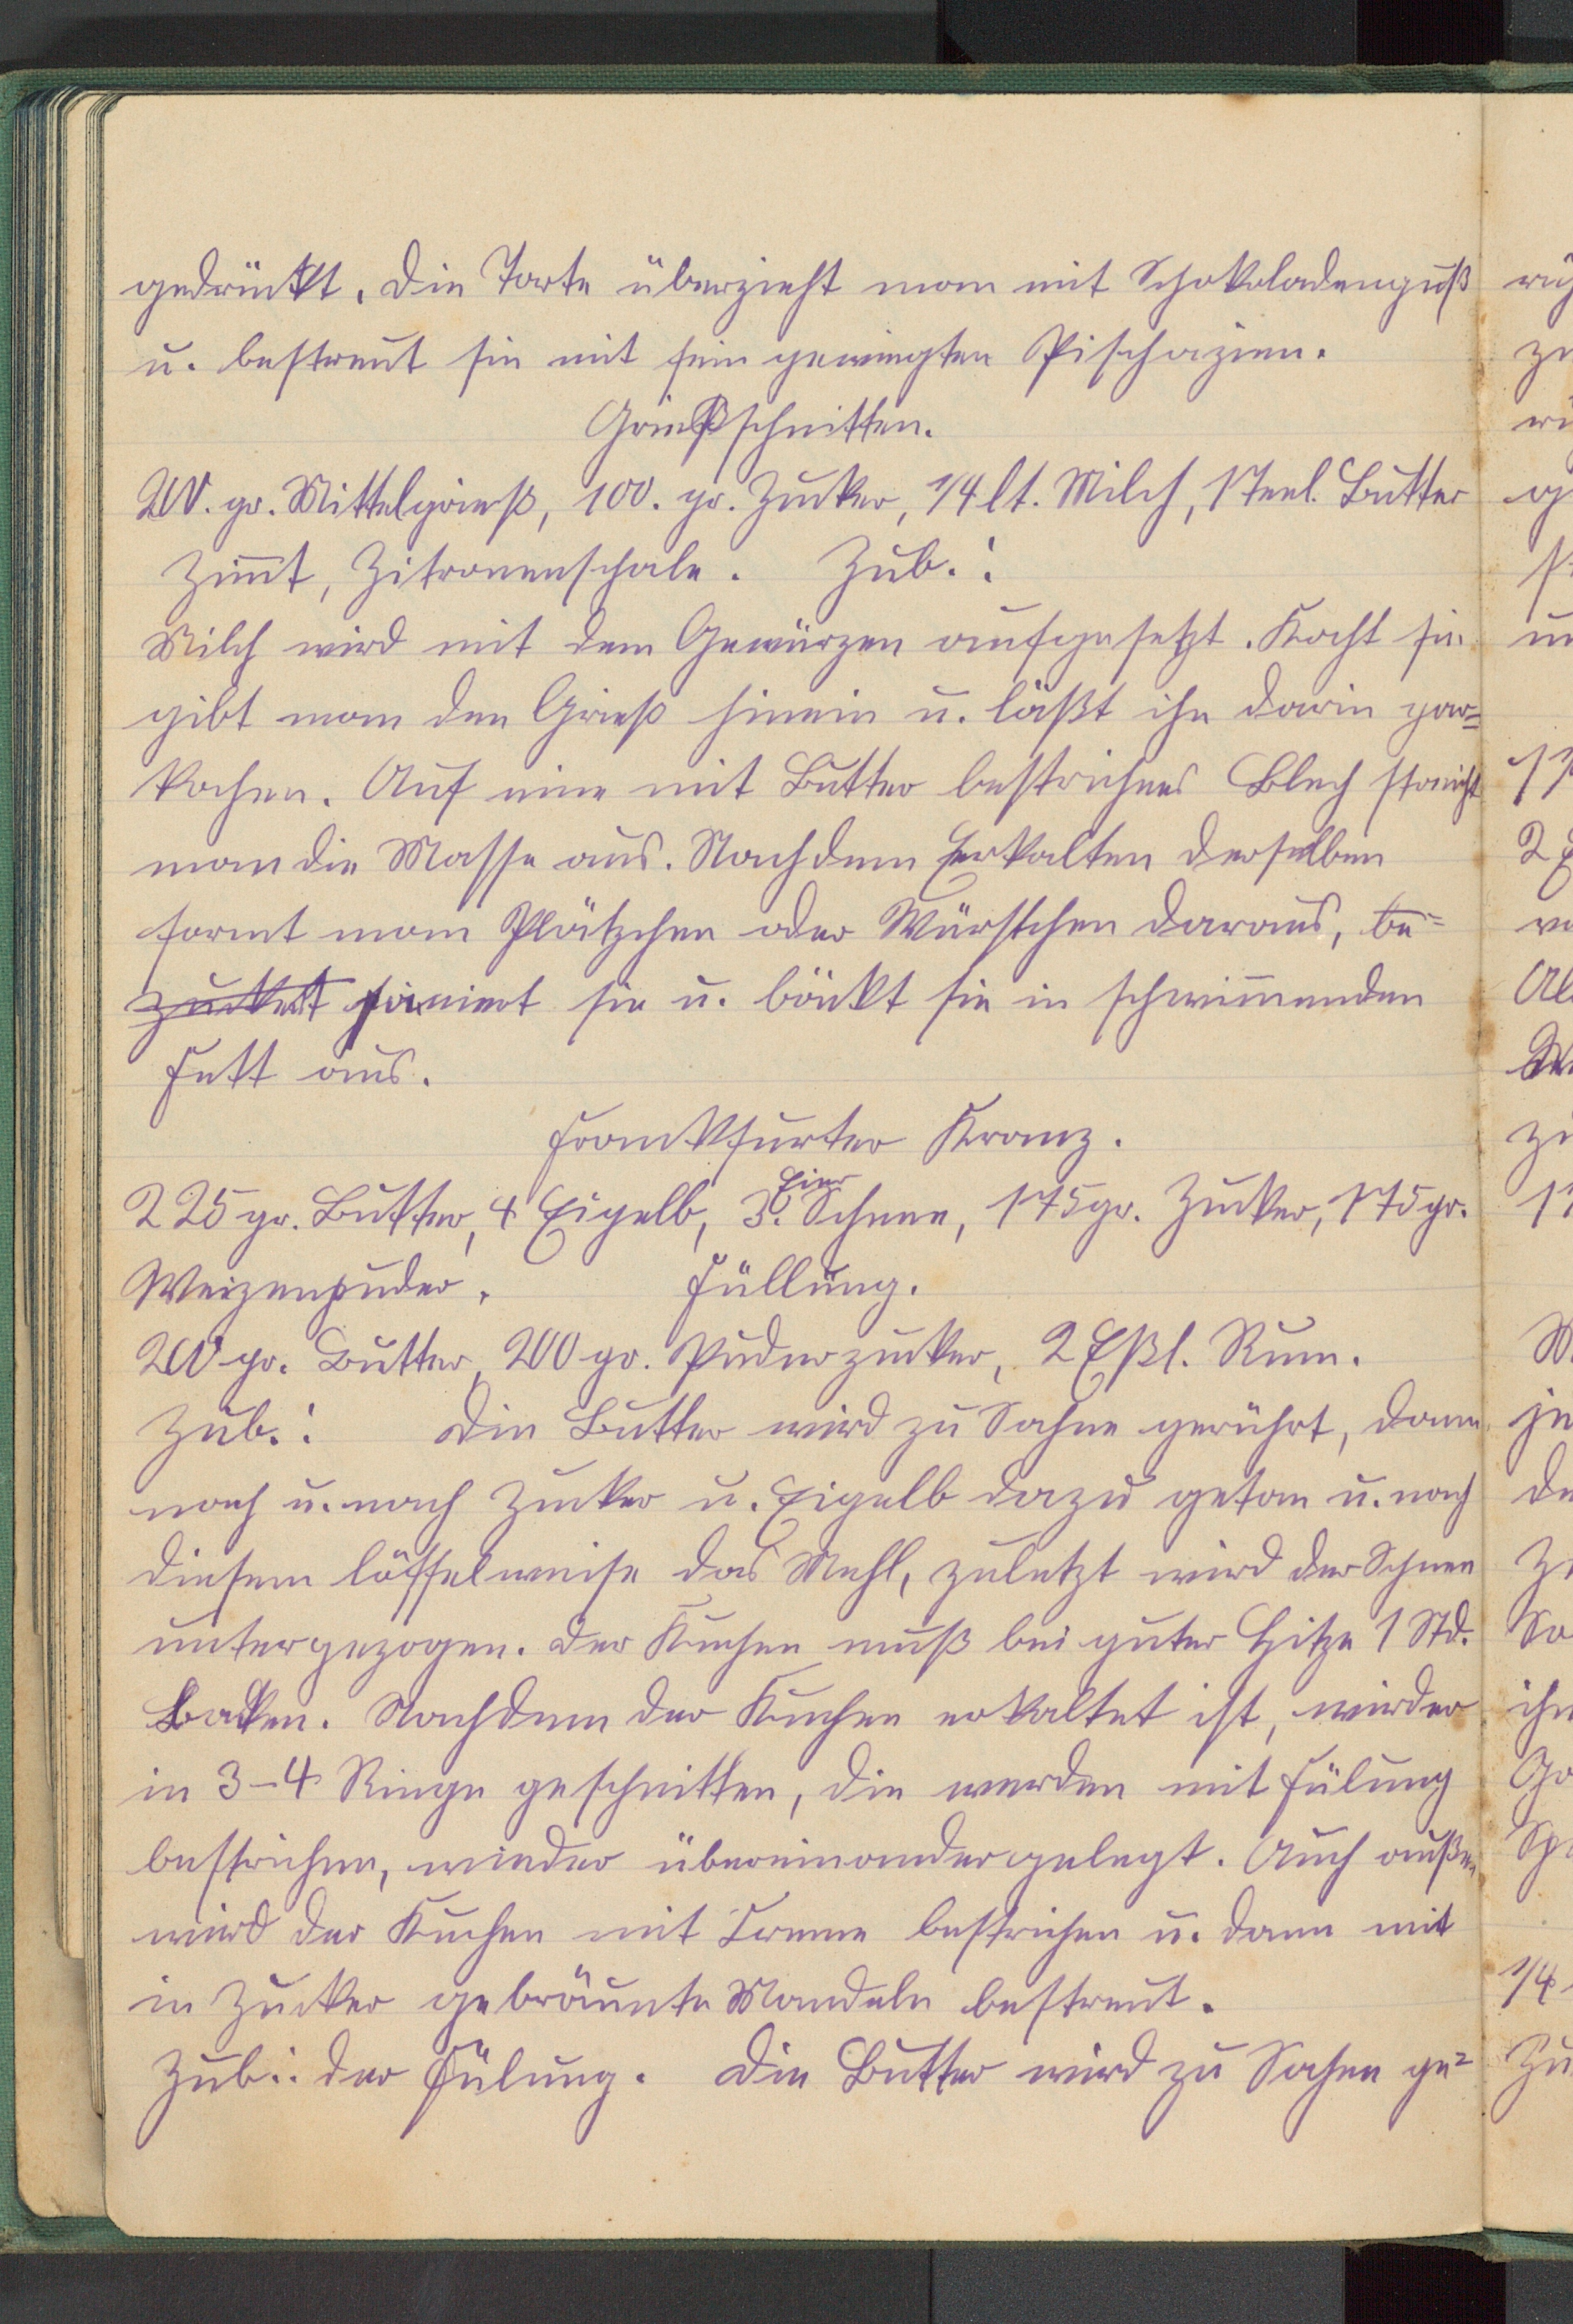 gedrückt. Die Torte überzieht man mit Schokoladenguß
u. bestreut sie mit fein gewiegten Pischazien.
Grießschnitten.
200. gr. Mittelgrieß, 100. gr. Zucker, 1/4 lt. Milch, 1 Teel. Butter
Zimt, Zitronenschale. Zub.:
Milch wird mit dem Gewürzen aufgesetzt. Kocht sie
gibt man den Grieß hinein u. läßt ihn darin gar=
kochen. Auf eine mit Butter bestrichnes Blech streicht
man die Masse aus. Nachdem Erkalten derselben
formt man Plätzchen oder Würstchen daraus, be=
zuckert paniert sie u. bäckt sie in schwimmenden
Fett aus.
Frankfurter Kranz.
225 gr. Butter, 4 Eigelb, 3. Eier Schnee, 175 gr. Zucker, 175 gr.
Weizenpuder. Füllung.
200 gr. Butter, 200 gr. Puderzucker, 2 Eßl. Rum.
Zub.: Die Butter wird zu Sahne gerührt, dann
nach u. nach Zucker u. Eigelb dazu getan u. nach
diesem löffelweise das Mehl, zuletzt wird der Schnee
untergezogen. Der Kuchen muß bei guter Hitze 1 Std.
backen. Nachdem der Kuchen erkaltet ist, wird er
in 3-4 Ringe geschnitten, die werden mit Fülung
bestrichen, wieder übereinandergelegt. Auch außen
wird der Kuchen mit Creme bestrichen u. dann mit
in Zucker gebräunte Mandeln bestreut.
Zub.: der Fülung. Die Butter wird zu Sahen ge=